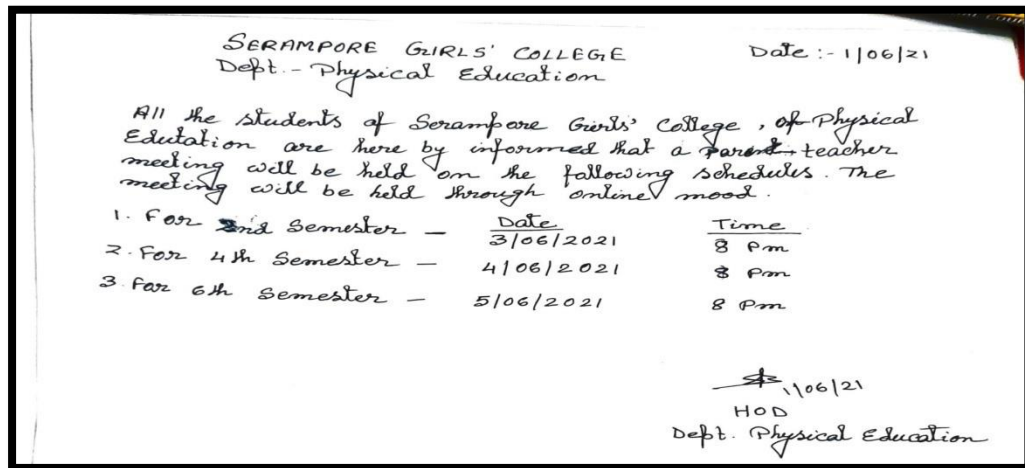 SERAMPORE GIRLS' COLLEGE Date :- 1/06/21
Deptt. - Physical Education
All the students of Serampore Girls' College, of Physical
Edutation are here by informed that a Parent-teacher
meeting will be held on the fallowing schedules. The
meeting will be held through online mood.
Date Time
1. For 2nd Semester — 3/06/2021 8 Pm
2. For 4th Semester — 4/06/2021 8 Pm
3. For 6th Semester — 5/06/2021 8 Pm
1/06/21
HOD
Deptt. Physical Education